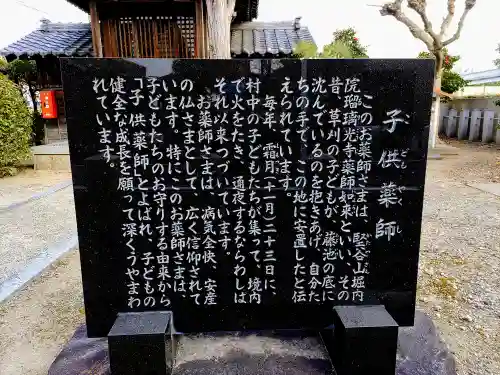 子供薬師
こどもやくし
このお薬師さまは、堅谷山堀内
院瑠璃光寺薬師如来といい、その
昔、草刈の子どもが、藤池の底に
沈んでいるのを抱きあげ、自分た
ちの手で、この地に安置したと伝
えられています。
毎年、霜月(十一月)二十三日に、
村中の子どもたちが集って、境内
で火をたき、通夜するならわしは
それ以来つづいています。
お薬師さまは、病気全快、安産
の仏さまとして、広く信仰されて
います。特にこのお薬師さまは、
子どもたちのお守りする由来から
「子供薬師」とよばれ、子どもの
健全な成長を願って深くうやまわ
れています。